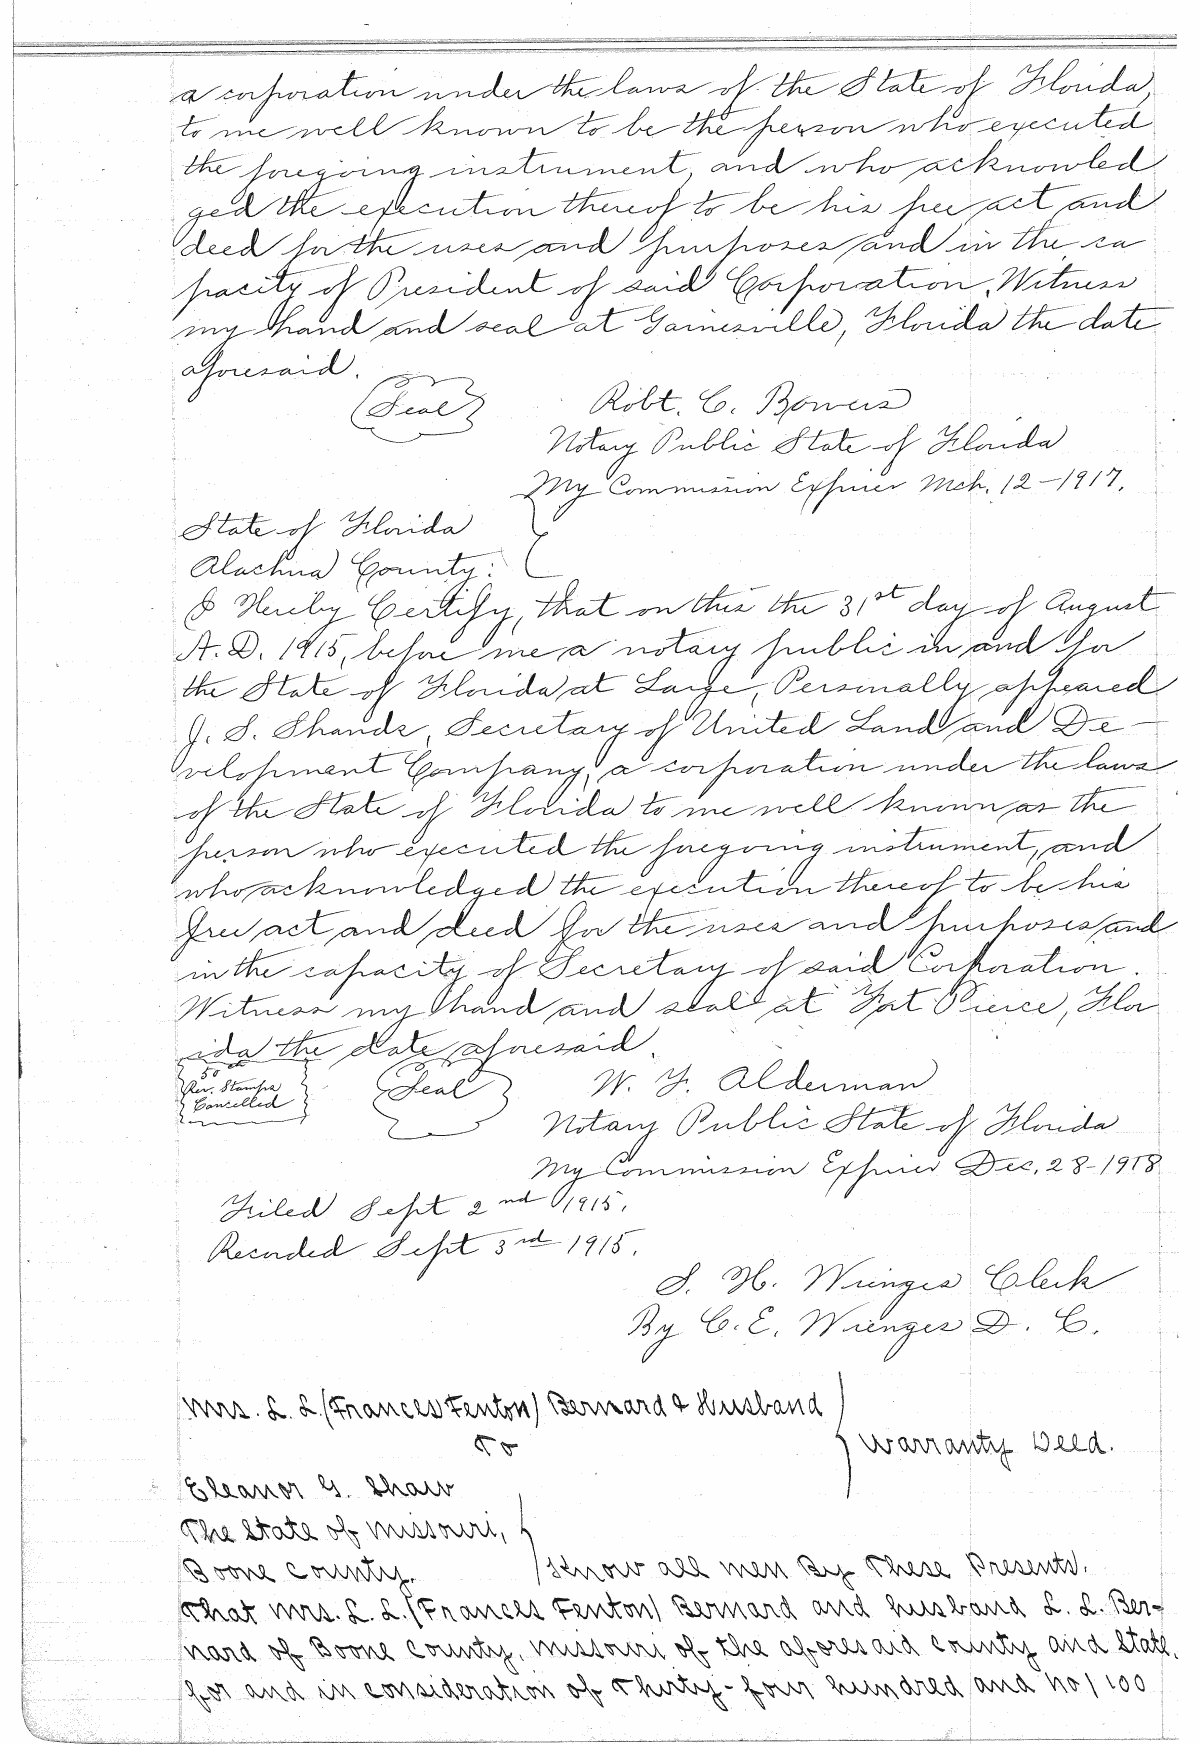 a corporation under the laws of the State of Florida,
to me well known to be the person who executed
the foregoing instrument, and who acknowled
ged the execution thereof to be his free act and
deed for the uses and purposes and in the ca
pacity of President of said Corporation. Witness
my hand and seal at Gainesville, Florida the date
aforesaid.
(Seal)
Robt. C. Bowers
Notary Public State of Florida
My Commission Expires Mch. 12-1917.
State of Florida
Alachua County:
I Hereby Certify, that on this the 31st day of August
A.D. 1915, before me a notary public in and for
the State of Florida at Large, Personally appeared
J. S. Shands, Secretary of United Land and De-
velopment Company, a corporation under the laws
of the State of Florida to me well known as the
person who executed the foregoing instrument, and
who acknowledged the execution thereof to be his
free act and deed for the uses and purposes and
in the capacity of Secretary of said Corporation.
Witness my hand and seal at Fort Pierce, Flor
ida the date aforesaid.
50
Rev. Stamps
Cancelled
Seal
W. Y. Alderman
Notary Public State of Florida
My Commission Expires Dec. 28-1918
Filed Sept 2nd 1915.
Recorded Sept 3rd 1915.
S. H. Wienges Clerk
By C. E. Wienges D. C.
Mrs. L. L. (Frances Fenton) Bernard & Husband
To
Warranty Deed.
Eleanor G. Shaw
The State of Missouri,
Boone County.
Know all men By These Presents.
That Mrs. L. L. (Frances Fenton) Bernard and husband L. L. Ber-
nard of Boone County, Missouri of the aforesaid county and State,
for and in consideration of Thirty-four hundred and no/100